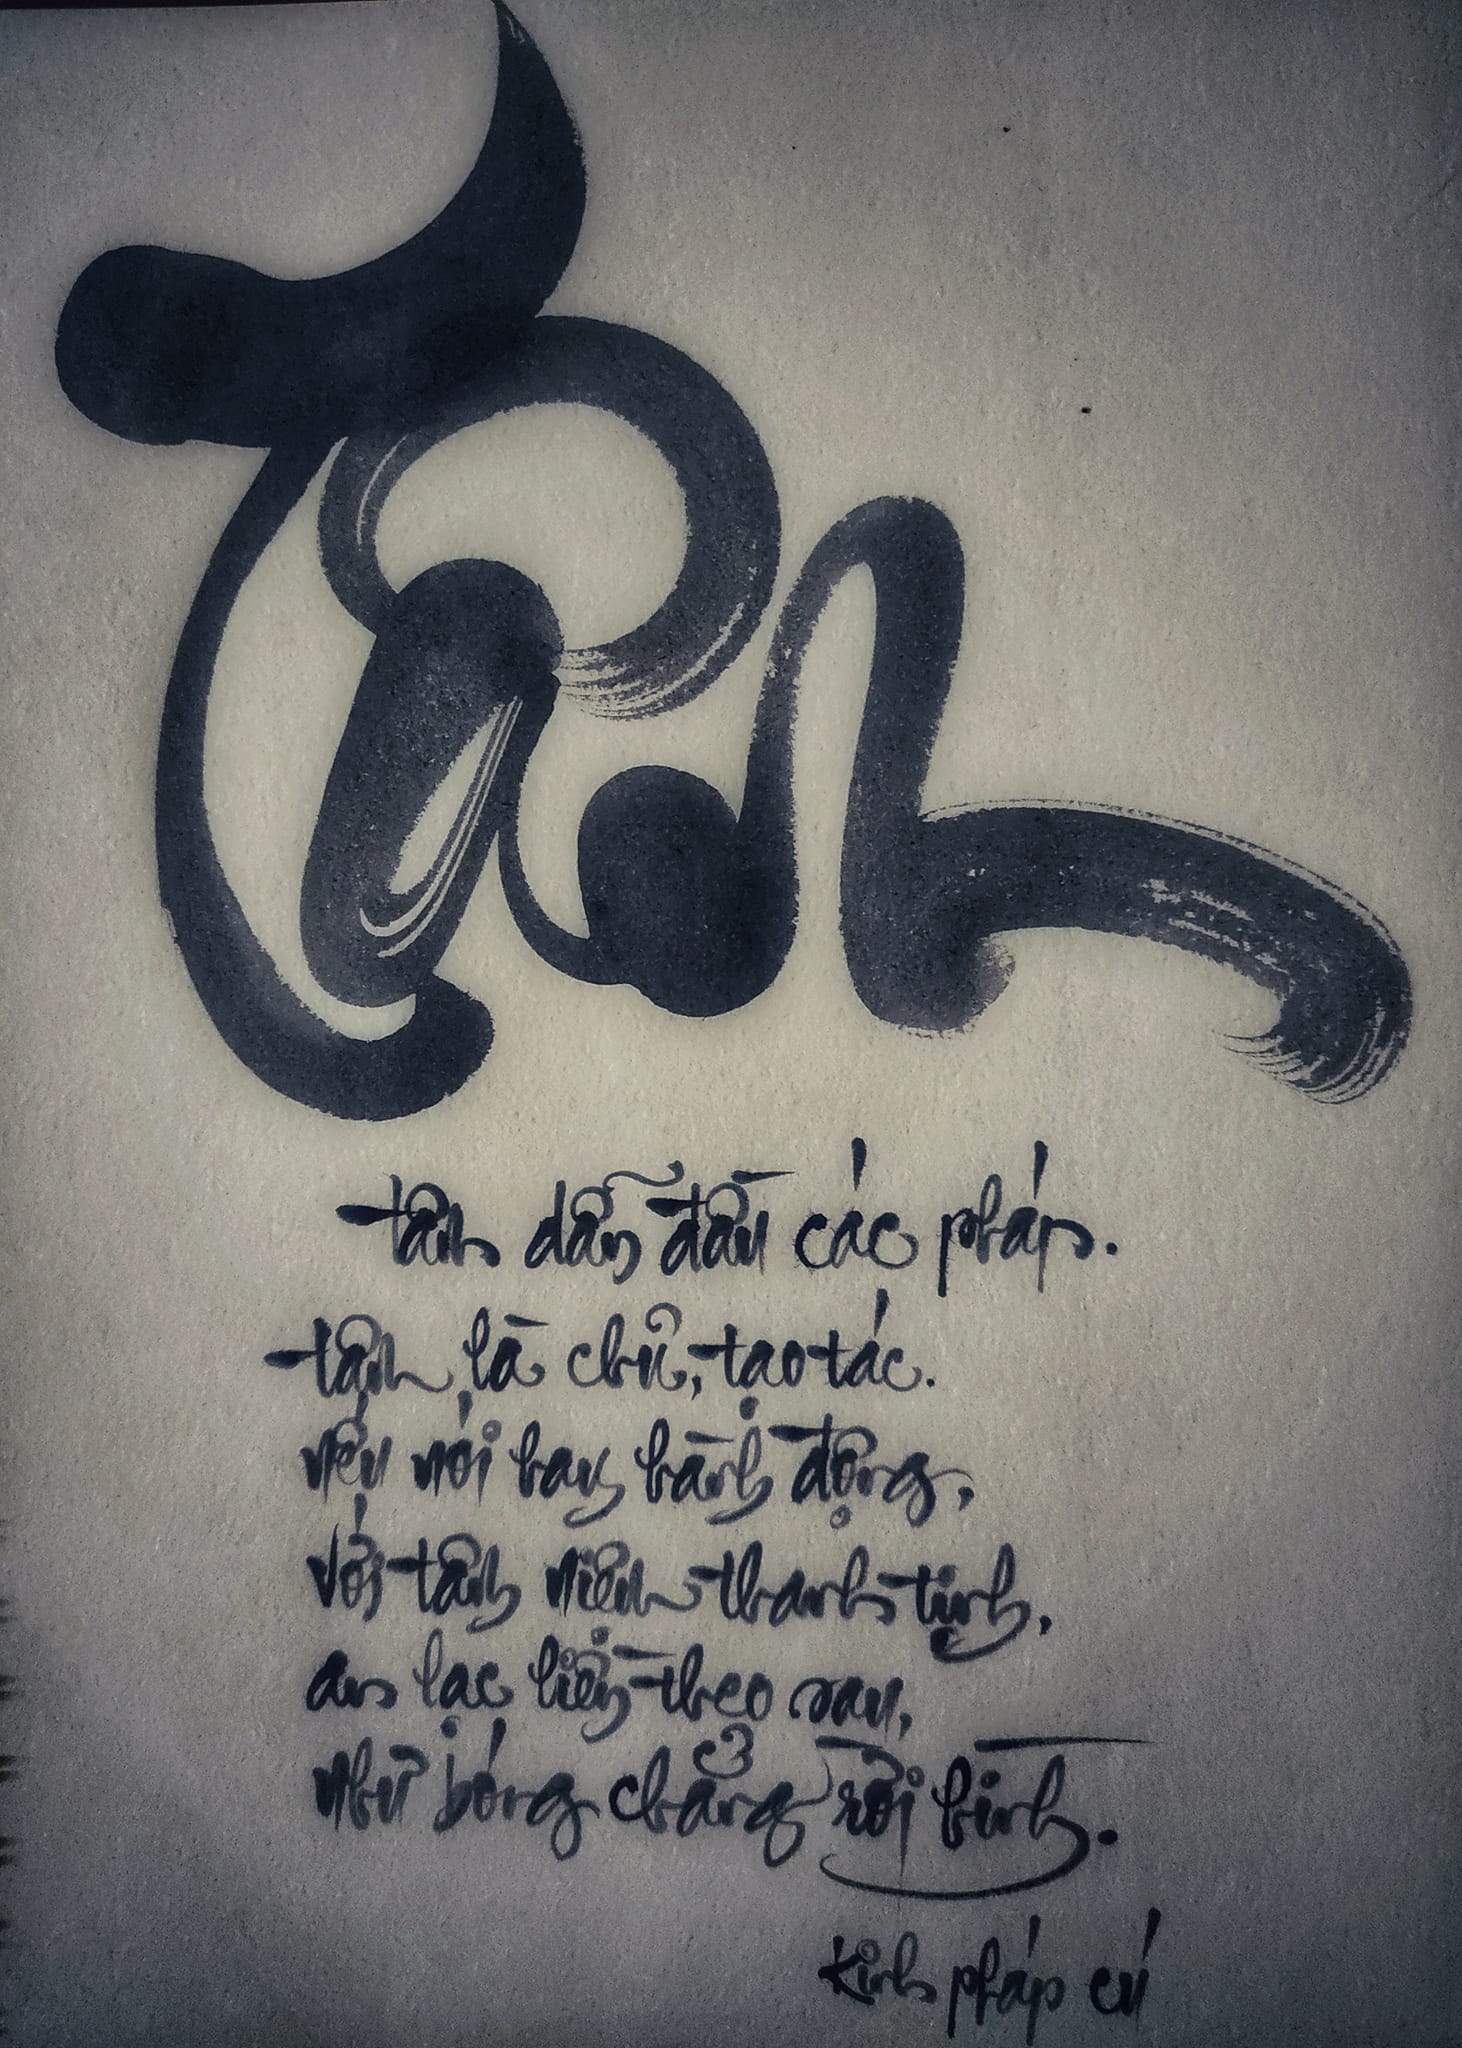 Tâm
tâm dẫn đầu các pháp.
tâm là chủ, tạo tác.
nếu nói hay hành động,
với tâm niệm thanh tịnh,
an lạc liền theo sau,
như bóng chẳng rời hình.
Kinh pháp cú